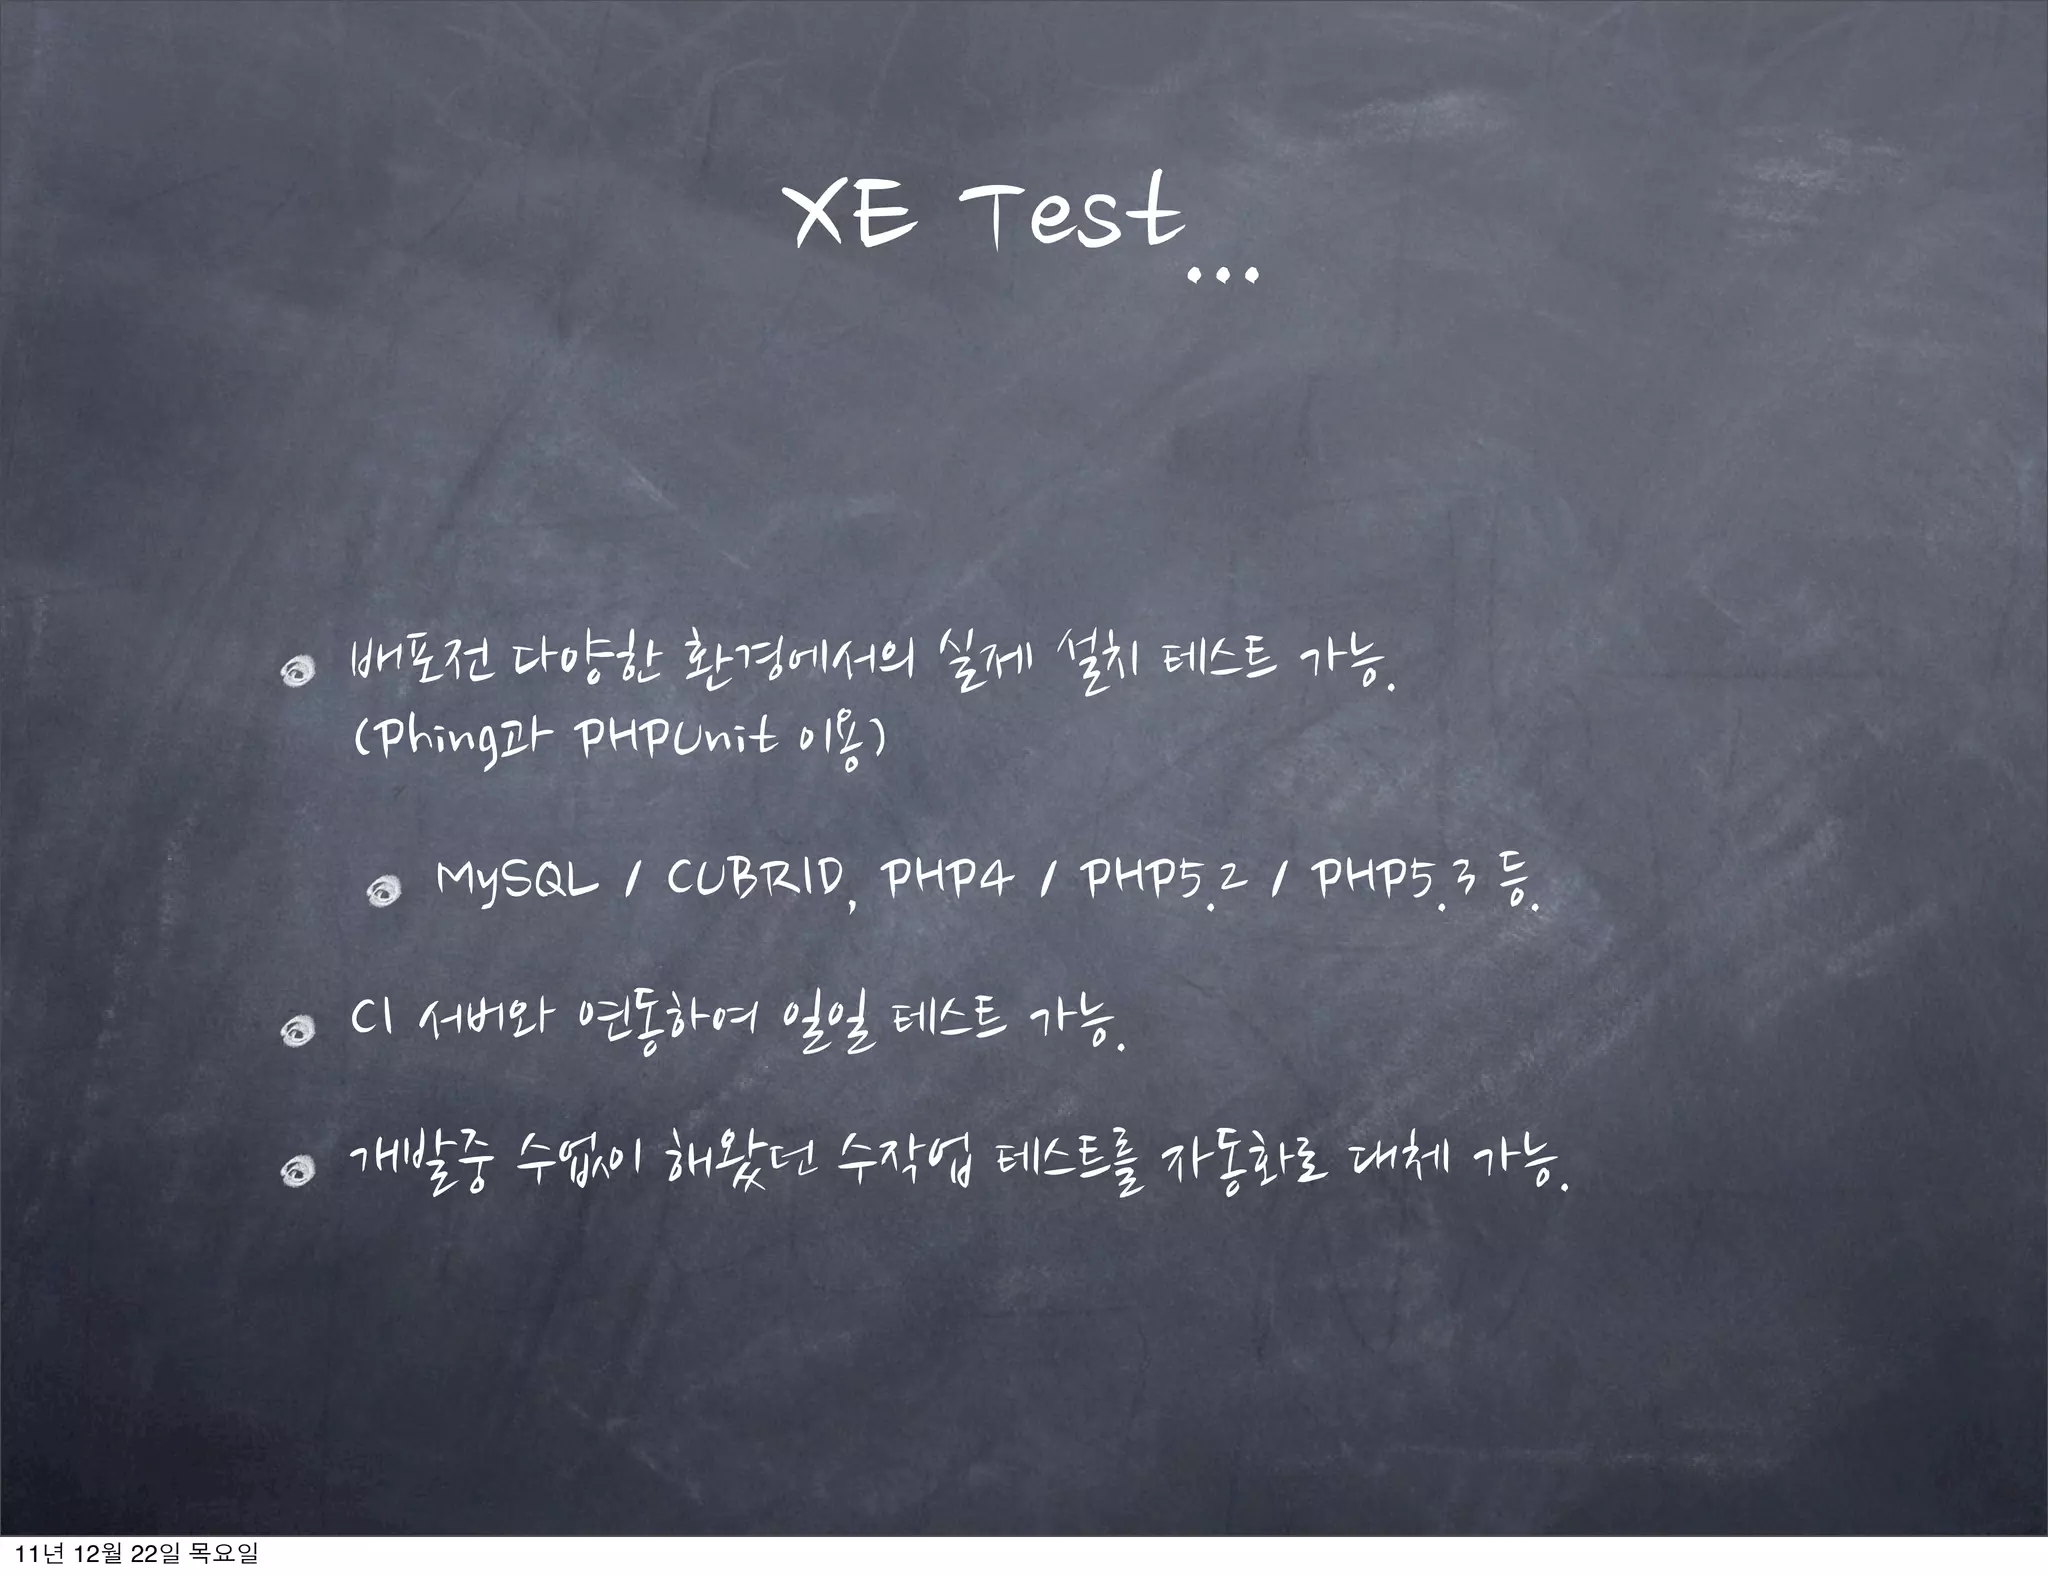 XE Test...
배포전 다양한 환경에서의 실제 설치 테스트 가능.
(Phing과 PHPUnit 이용)
MySQL / CUBRID, PHP4 / PHP5.2 / PHP5.3 등.
CI 서버와 연동하여 일일 테스트 가능.
개발중 수없이 해왔던 수작업 테스트를 자동화로 대체 가능.
11년 12월 22일 목요일